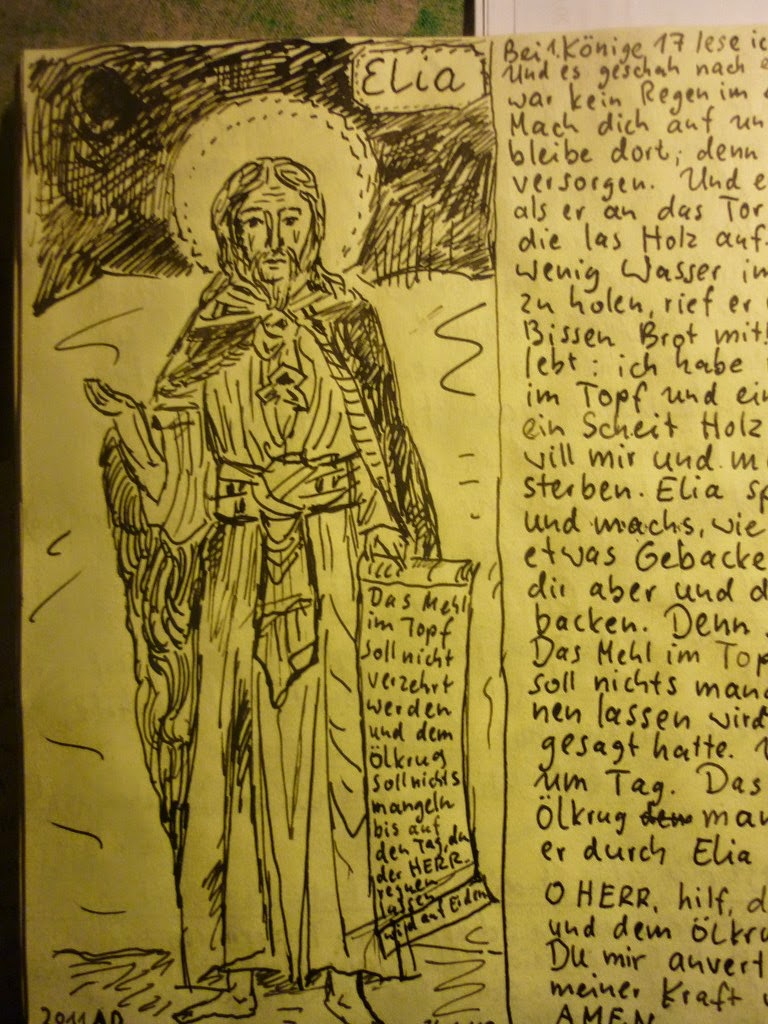 Elia
Das Mehl
im Topf
soll nicht
verzehrt
werden
und dem
Ölkrug
soll nichts
mangeln
bis auf
den Tag, da
der HERR
regnen
lassen
wird auf Erden
2011 AD
Bei 1. Könige 17 lese ic
Und es geschah nach e
war kein Regen im
Mach dich auf un
bleibe dort; denn
versorgen. Und e
als er an das Tor
die las Holz auf.
wenig Wasser im
zu holen, rief er
Bissen Brot mit!
lebt: ich habe
im Topf und ein
ein Scheit Holz
will mir und m
sterben. Elia sp
und machs, wie
etwas Gebacke
dir aber und d
backen. Denn
Das Mehl im Top
soll nichts mang
nen lassen wird
gesagt hatte.
um Tag. Das
Ölkrug man
er durch Elia
O HERR, hilf, d
und dem Ölkru
Du mir anvert
meiner Kraft
AMEN